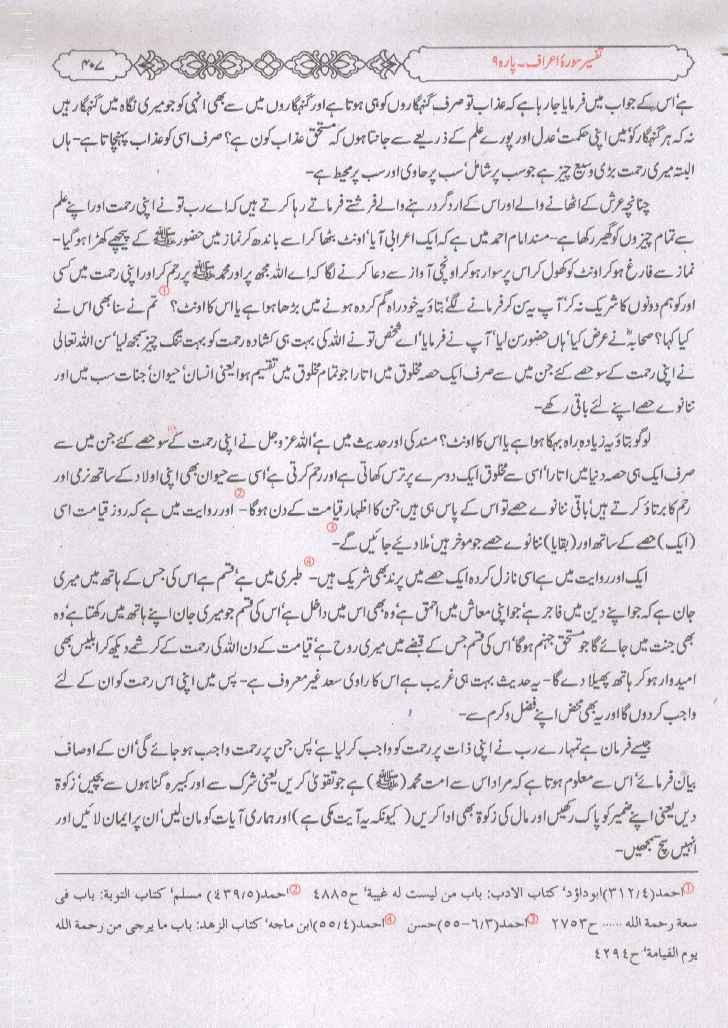 تفسیر سورۂ اعراف۔ پارہ ۹
۴۰۷
ہے‘ اس کے جواب میں فرمایا جا رہا ہے کہ عذاب تو صرف گنہگاروں کو ہی ہوتا ہے اور گنہگاروں میں سے بھی انہی کو جو میری نگاہ میں گنہگار ہیں
نہ کہ ہر گنہگار کو‘ میں اپنی حکمت‘ عدل اور پورے علم کے ذریعے سے جانتا ہوں کہ مستحق عذاب کون ہے؟ صرف اسی کو عذاب پہنچاتا ہے- ہاں
البتہ میری رحمت بڑی وسیع چیز ہے جو سب پر شامل‘ سب پر حاوی اور سب پر محیط ہے-
چنانچہ عرش کے اٹھانے والے اور اس کے اردگرد رہنے والے فرشتے فرماتے رہا کرتے ہیں کہ اے رب تو نے اپنی رحمت اور اپنے علم
سے تمام چیزوں کو گھیر رکھا ہے- مسند امام احمد میں ہے کہ ایک اعرابی آیا‘ اونٹ بٹھا کر اسے باندھ کر نماز میں حضور ﷺ کے پیچھے کھڑا ہو گیا-
نماز سے فارغ ہو کر اونٹ کو کھول کر اس پر سوار ہو کر اونچی آواز سے دعا کرنے لگا کہ اے اللہ مجھ پر اور محمد ﷺ پر رحم کر اور اپنی رحمت میں کسی
اور کو ہم دونوں کا شریک نہ کر‘ آپ یہ سن کر فرمانے لگے‘ بتاؤ یہ خود راہ گم کردہ ہونے میں بڑھا ہوا ہے یا اس کا اونٹ؟ ① تم نے سنا بھی اس نے
کیا کہا؟ صحابہؓ نے عرض کیا‘ ہاں حضور سن لیا‘ آپ نے فرمایا‘ اے شخص تو نے اللہ کی بہت ہی کشادہ رحمت کو بہت تنگ چیز سمجھ لیا‘ سن اللہ تعالیٰ
نے اپنی رحمت کے سو حصے کئے جن میں سے صرف ایک حصہ مخلوق میں اتارا جو تمام مخلوق میں تقسیم ہوا یعنی انسان‘ حیوان‘ جنات سب میں اور
ننانوے حصے اپنے لئے باقی رکھے-
لوگو بتاؤ یہ زیادہ راہ بہکا ہوا ہے یا اس کا اونٹ؟ مسند کی اور حدیث میں ہے‘ اللہ عز و جل نے اپنی رحمت کے سو حصے کئے جن میں سے
صرف ایک ہی حصہ دنیا میں اتارا‘ اسی سے مخلوق ایک دوسرے پر ترس کھاتی ہے اور رحم کرتی ہے‘ اسی سے حیوان بھی اپنی اولاد کے ساتھ نرمی اور
رحم کا برتاؤ کرتے ہیں‘ باقی ننانوے حصے تو اس کے پاس ہی ہیں جن کا اظہار قیامت کے دن ہو گا- ② اور روایت میں ہے کہ روز قیامت اسی
(ایک) حصے کے ساتھ اور (بقایا) ننانوے حصے جو موخر ہیں‘ ملا دیئے جائیں گے- ③
ایک اور روایت میں ہے اسی نازل کردہ ایک حصے میں پرند بھی شریک ہیں- ④ طبری میں ہے‘ قسم ہے اس کی جس کے ہاتھ میں میری
جان ہے کہ جو اپنے دین میں فاجر ہے‘ جو اپنی معاش میں احمق ہے‘ وہ بھی اس میں داخل ہے‘ اس کی قسم جو میری جان اپنے ہاتھ میں رکھتا ہے‘ وہ
بھی جنت میں جائے گا جو مستحق جہنم ہو گا‘ اس کی قسم جس کے قبضے میں میری روح ہے‘ قیامت کے دن اللہ کی رحمت کے کرشمے دیکھ کر ابلیس بھی
امیدوار ہو کر ہاتھ پھیلا دے گا- یہ حدیث بہت ہی غریب ہے اس کا راوی سعد غیر معروف ہے- پس میں اپنی اس رحمت کو ان کے لئے
واجب کر دوں گا اور یہ بھی محض اپنے فضل و کرم سے-
جیسے فرمان ہے تمہارے رب نے اپنی ذات پر رحمت کو واجب کر لیا ہے‘ پس جن پر رحمت واجب ہو جائے گی‘ ان کے اوصاف
بیان فرمائے‘ اس سے معلوم ہوتا ہے کہ مراد اس سے امت محمد (ﷺ) ہے جو تقویٰ کریں یعنی شرک سے اور کبیرہ گناہوں سے بچیں‘ زکوٰۃ
دیں یعنی اپنے ضمیر کو پاک رکھیں اور مال کی زکوٰۃ بھی ادا کریں (کیونکہ یہ آیت مکی ہے) اور ہماری آیات کو مان لیں‘ ان پر ایمان لائیں اور
انہیں سچ سمجھیں-
① احمد(۳۱۲/۴)ابوداؤد‘ کتاب الادب: باب من لیست له غیبة‘ ح۴۸۸۵ ② احمد(۴۳۹/۵) مسلم‘ کتاب التوبة: باب فی
سعة رحمة الله ...... ح۲۷۵۳ ③ احمد(۶/۳-۵۵)حسن ④ احمد(۵۵/۴)ابن ماجه‘ کتاب الزهد: باب ما یرجی من رحمة الله
یوم القیامة‘ ح۴۲۹۴